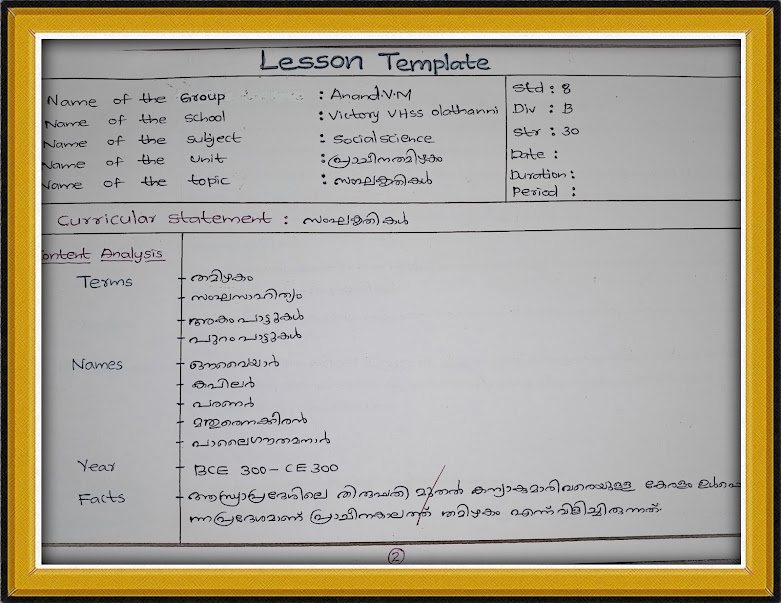 Lesson Template
Name of the Group : Anand.V.M
Name of the school : Victory VHSS olathanni
Name of the subject : Social science
Name of the unit : പ്രാചീനതമിഴകം
Name of the topic : സംഘകൃതികൾ
Std : 8
Div : B
Str : 30
Date :
Duration :
Period :
Curricular Statement : സംഘകൃതികൾ
ontent Analysis
Terms
- തമിഴകം
- സംഘസാഹിത്യം
- അകം പാട്ടുകൾ
- പുറം പാട്ടുകൾ
Names
- ഔവ്വൈയാർ
- കപിലർ
- പരണർ
- മതുരൈനക്കീരൻ
- പാലൈഗൗതമനാർ
Year
- BCE 300 – CE 300
Facts
- ആന്ധ്രാപ്രദേശിലെ തിരുപ്പതി മുതൽ കന്യാകുമാരിവരെയുള്ള കേരളം ഉൾപ്പെ
ന്നപ്രദേശമാണ് പ്രാചീനകാലത്ത് തമിഴകം എന്ന് വിളിച്ചിരുന്നത്.
2